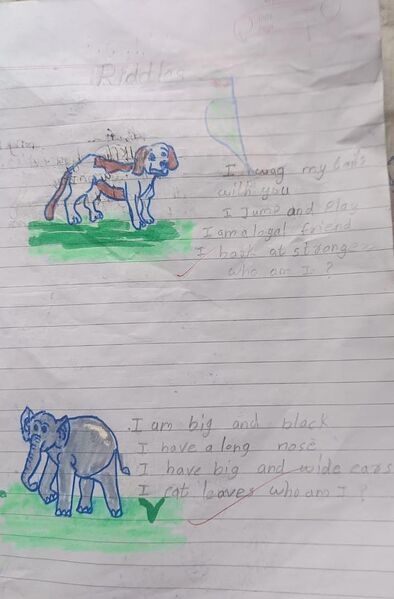 Riddles
I wag my
with you
I Jump and Play
I am a logal friend
I bark at stronger
who am I ?
I am big and black
I have a long nose
I have big and wide ears
I eat leaves who am I ?